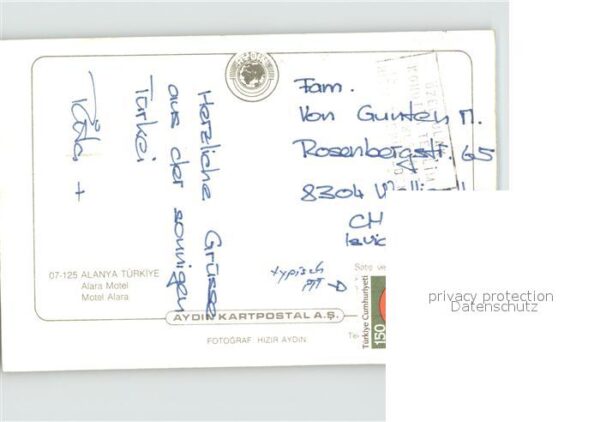 Herzliche Grüsse
aus der sonnigen
Türkei
+
Fam.
Von Gunten M.
Rosenbergstr. 65
8304
CH
typisch
PTT
07-125 ALANYA TÜRKİYE
Alara Motel
Motel Alara
AYDIN KARTPOSTAL A.Ş.
FOTOĞRAF HIZIR AYDIN
Satış ve
Türkiye Cumhuriyeti
150
privacy protection
Datenschutz